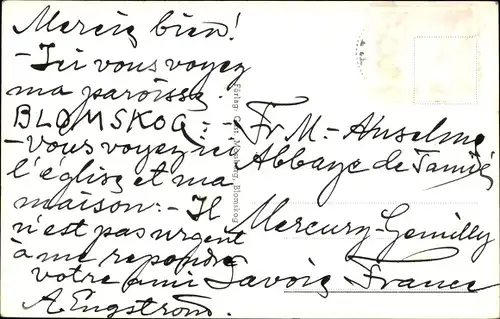 Merci bien!
-Ici vous voyez
ma paroisse.
BLOMSKOG:-
-vous voyez ici
l'église et ma
maison:- Il
n'est pas urgent
à me repondre
votre ami
A Engstrom.
Förlag: Blomskog
Fr. M-Anselme
Abbaye de Tamié
Mercury-Gemilly
Savoie France